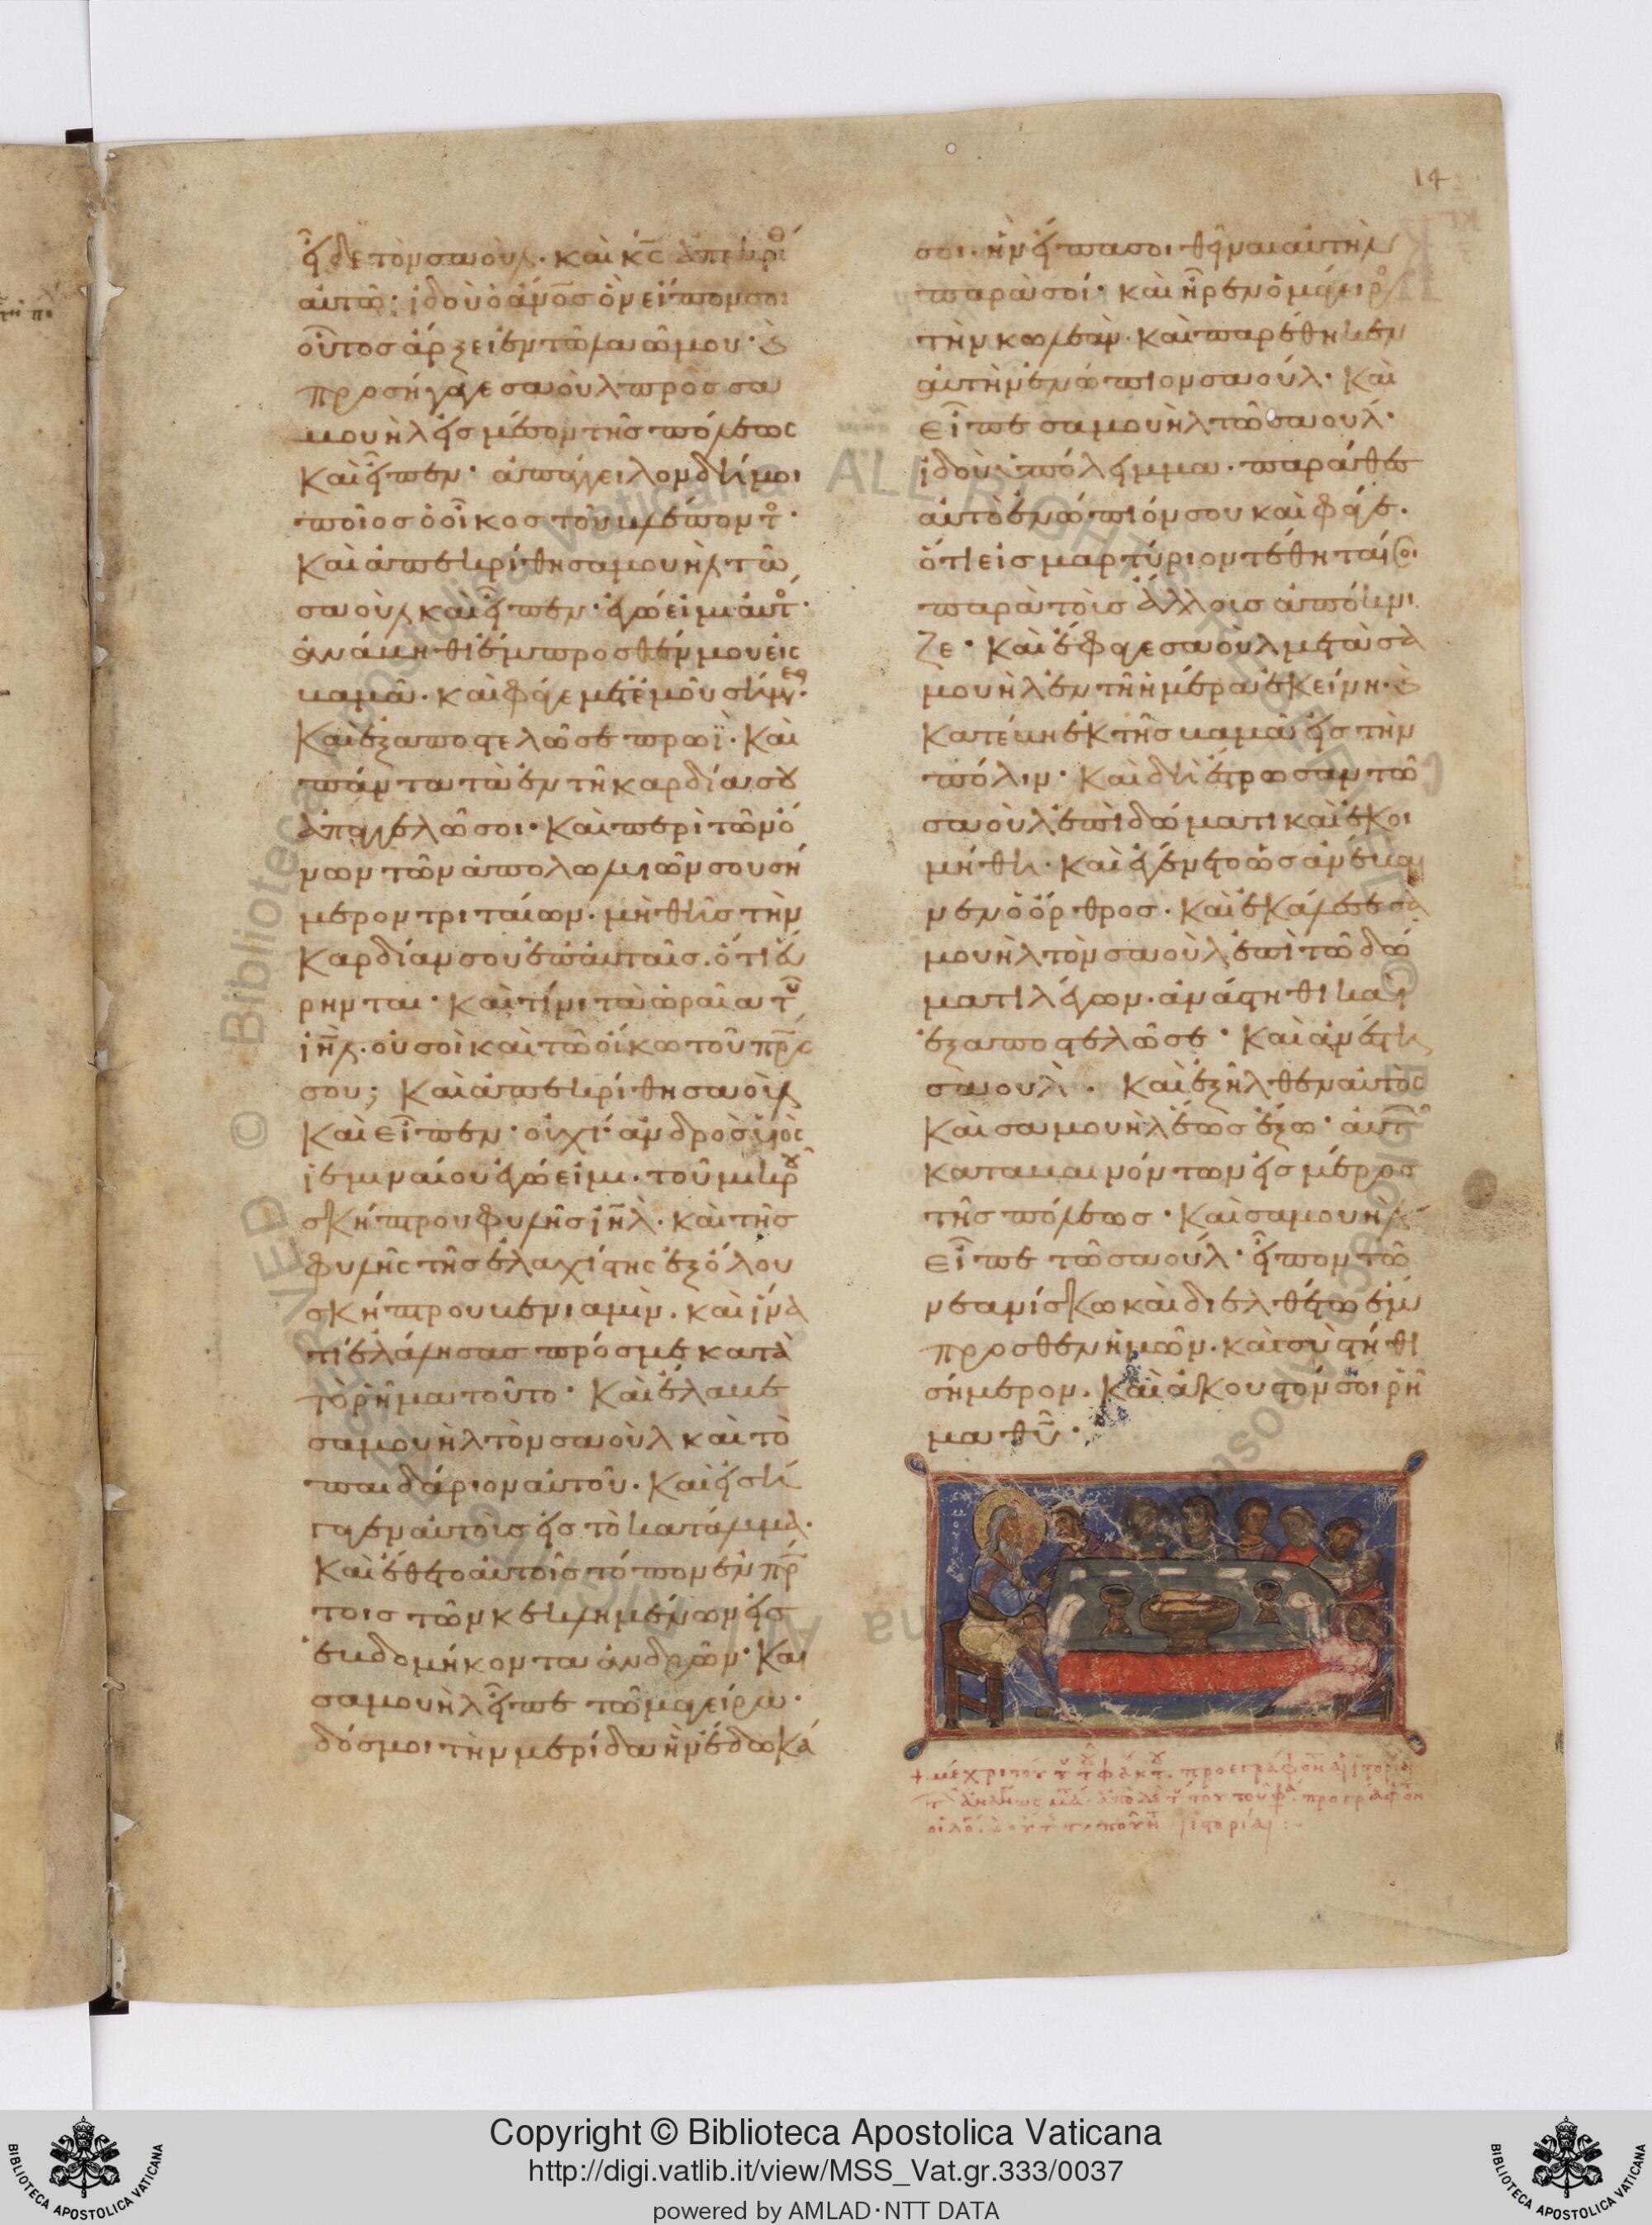 14
εἶδε τὸν σαούλ· καὶ κ̅ς̅ ἀπεκρίθ
αὐτῶ· ἰδοὺ ὁ ἄν̅ο̅ς ὃν εἶπόν σοι
οὗτος ἄρξει ἐν τῶ λαῶ μου· καὶ
προσήγαγε σαοὺλ πρὸς σα
μουὴλ εἰς μέσον τῆς πόλεως
Καὶ εἶπεν· ἀπάγγειλον δή μοι
ποῖος ὁ οἶκος τοῦ βλέποντο·
Καὶ ἀπεκρίθη σαμουὴλ τῶ
σαοὺλ καὶ εἶπεν· ἐγώ εἰμι αὐτο·
ἀνάβηθι ἔμπροσθέν μου εἰς
βαμᾶ· καὶ φάγε μετ' ἐμοῦ σήμερον·
Καὶ ἐξαποστελῶ σε πρωῒ· Καὶ
πάντα τὰ ἐν τῆ καρδία σου
ἀπαγγελῶ σοι· Καὶ περὶ τῶν ὄ
νων τῶν ἀπολωλυιῶν σου σή
μερον τριταίων· μὴ θῆς τὴν
Καρδίαν σου ἐπ' αὐταῖς· ὅτι εὕ
ρηνται· Καὶ τίνι τὰ ὡραῖα τοῦ
ι̅η̅λ· οὐ σοὶ καὶ τῶ οἴκω τοῦ π̅ρ̅ς
σου; Καὶ ἀπεκρίθη σαοὺλ
Καὶ εἶπεν· οὐχί· ἀνδρὸς υἱὸς
ἰεμιναίου ἐγώ εἰμι· τοῦ μικροῦ
σκήπτρου φυλῆς ι̅η̅λ· καὶ τῆς
φυλῆς τῆς ἐλαχίστης ἐξ ὅλου
σκήπτρου βενιαμίν· καὶ ἵνα
τί ἐλάλησας πρός με κατὰ
τὸ ῥῆμα τοῦτο· Καὶ ἔλαβε
σαμουὴλ τὸν σαοὺλ καὶ τὸ
παιδάριον αὐτοῦ· Καὶ εἰσή
γαγεν αὐτοὺς εἰς τὸ κατάλυμα·
Καὶ ἔθετο αὐτοῖς τόπον ἐν πρώ
τοις τῶν κεκλημένων εἰς
ἑβδομήκοντα ἀνδρῶν· Καὶ
σαμουὴλ εἶπε τῶ μαγείρω·
δός μοι τὴν μερίδα ἣν ἔδωκά
σοι· ἣν εἶπά σοι θεῖναι αὐτὴν
παρὰ σοί· καὶ ἦρεν ὁ μάγειρο
τὴν κωλέαν· Καὶ παρέθηκεν
αὐτὴν ἐνώπιον σαούλ· Καὶ
εἶπε σαμουὴλ τῶ σαούλ·
ἰδοὺ ὑπόλειμμα· παράθες
αὐτὸ ἐνώπιόν σου καὶ φάγε·
ὅτι εἰς μαρτύριον τέθηταί σοι
παρὰ τοὺς ἄλλους ἀπόκνι
ζε· Καὶ ἔφαγε σαοὺλ μετὰ σα
μουὴλ ἐν τῆ ἡμέρα ἐκείνη· καὶ
Κατέβη ἐκ τῆς βαμᾶ εἰς τὴν
πόλιν· Καὶ διέστρωσαν τῶ
σαοὺλ ἐπὶ δώματι καὶ ἐκοι
μήθη· Καὶ ἐγένετο ὡς ἀνέβαι
νεν ὁ ὄρθρος· Καὶ ἐκάλεσε σα
μουὴλ τὸν σαοὺλ ἐπὶ τῶ δώ
ματι λέγων· ἀνάστηθι καὶ
ἐξαποστελῶ σε· Καὶ ἀνέστη
σαούλ· Καὶ ἐξῆλθεν αὐτὸς
Καὶ σαμουὴλ ἕως ἔξω· αὐτ
καταβαινόντων εἰς μέρος
τῆς πόλεως· Καὶ σαμουὴλ
εἶπε τῶ σαούλ· εἶπον τῶ
νεανίσκω καὶ διελθέτω ἔμ
προσθεν ἡμῶν· καὶ σὺ στῆθι
σήμερον· Καὶ ἄκουστόν σοι ῥῆ
μα θ̅υ̅·
+ μέχρι τοῦ
Copyright © Biblioteca Apostolica Vaticana
http://digi.vatlib.it/view/MSS_Vat.gr.333/0037
powered by AMLAD·NTT DATA
BIBLIOTECA APOSTOLICA VATICANA
BIBLIOTECA APOSTOLICA VATICANA